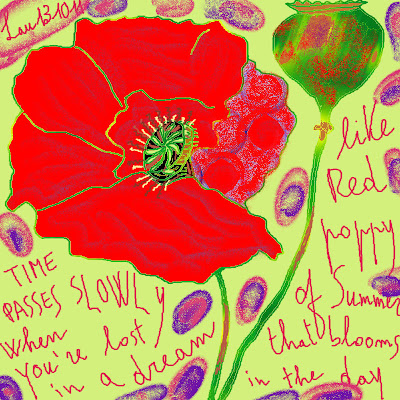 TIME
PASSES SLOWLY
when
You're lost
in a dream
like
Red
poppy
of Summer
that blooms
in the day